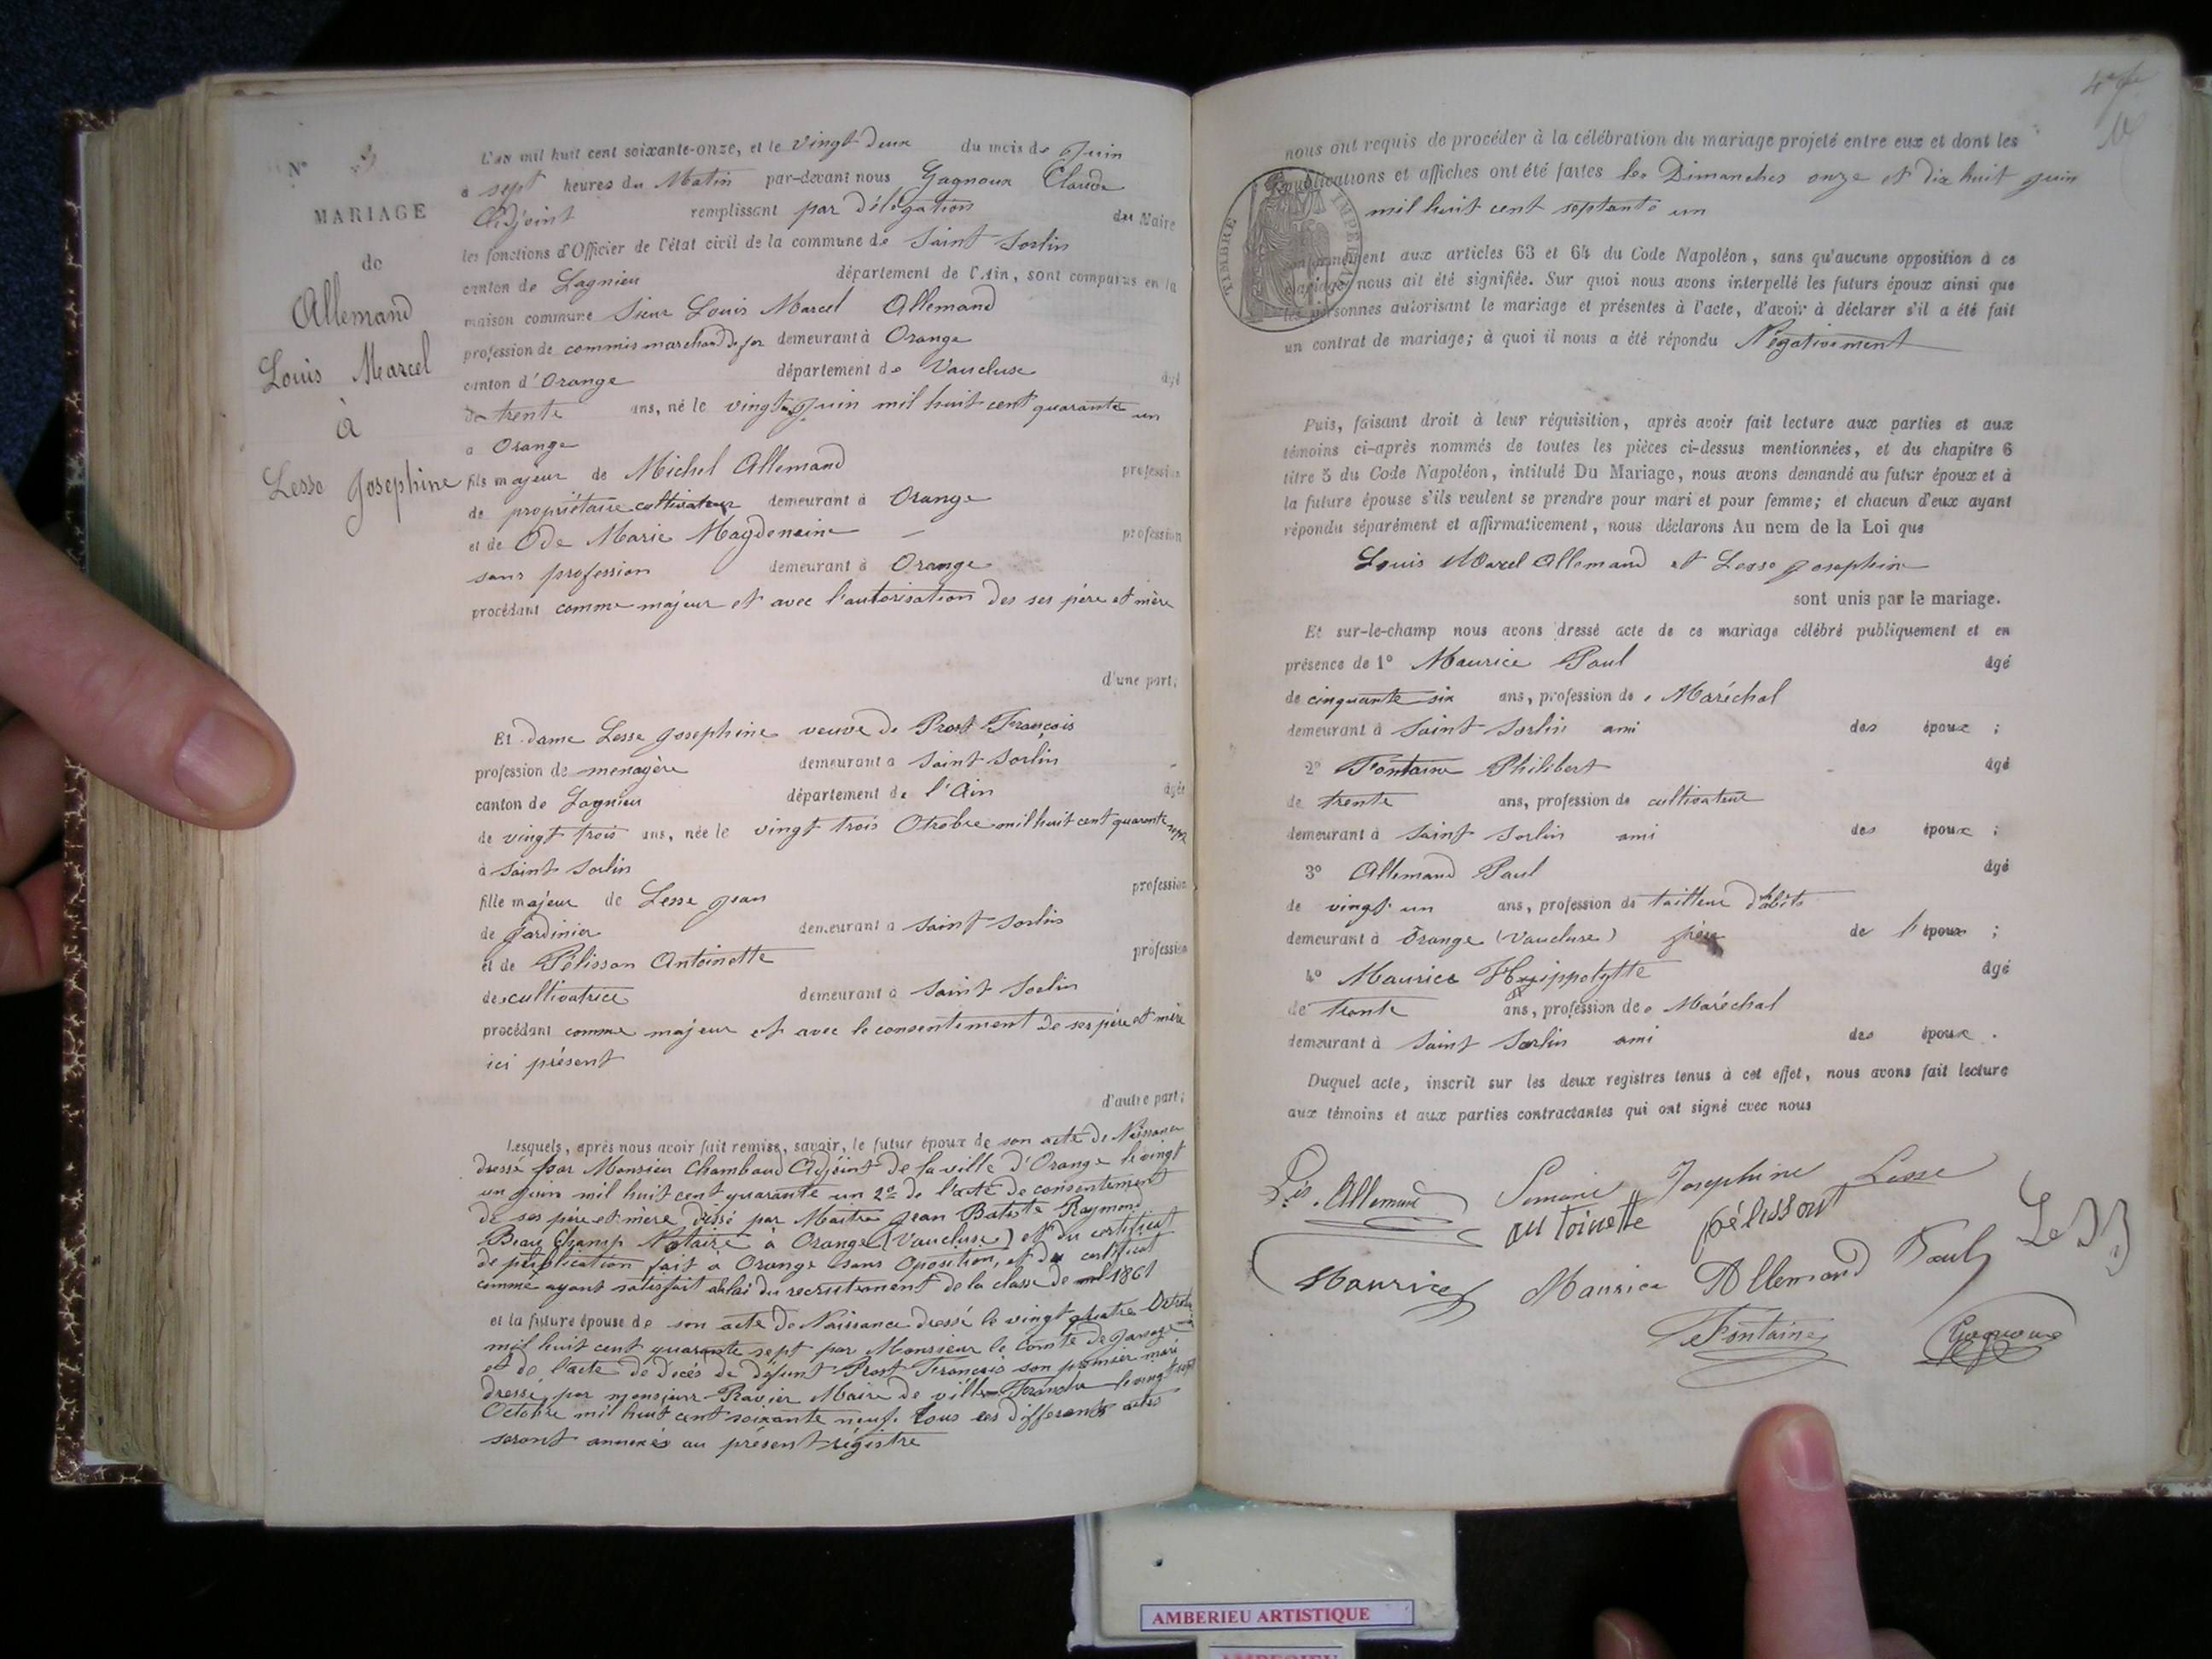 N° 3
MARIAGE
de
Allemand
Louis Marcel
à
Lesse Josephine
L'an mil huit cent soixante-onze, et le vingt deux du mois de Juin
à sept heures du Matin par-devant nous Gagnoux Claude
Adjoint remplissant par délégation du Maire
les fonctions d'Officier de l'état civil de la commune de Saint Sorlin
canton de Lagnieu département de l'Ain, sont comparus en la
maison commune Sieur Louis Marcel Allemand
profession de commis marchand de fer demeurant à Orange
canton d'Orange département de Vaucluse âgé
de trente ans, né le vingt Juin mil huit cent quarante un
à Orange
fils majeur de Michel Allemand profession
de propriétaire cultivateur demeurant à Orange
et de Ode Marie Magdeneine profession
sans profession demeurant à Orange
procédant comme majeur et avec l'autorisation des ses père et mère
d'une part;
Et dame Lesse Josephine veuve de Prost François
profession de menagère demeurant à Saint Sorlin
canton de Lagnieu département de l'Ain âgée
de vingt trois ans, née le vingt trois Otrobre mil huit cent quarante
à Saint Sorlin
fille majeur de Lesse Jean profession
de Jardinier demeurant à Saint Sorlin
et de Pélisson Antoinette profession
de cultivatrice demeurant à Saint Sorlin
procédant comme majeur et avec le consentement de ses père et mère
ici présent
d'autre part;
Lesquels, après nous avoir fait remise, savoir, le futur époux de son acte de Naissance
dressé par Monsieur Chambaud Adjoint de la ville d'Orange le vingt
un Juin mil huit cent quarante un 2° de l'acte de consentement
de ses père et mère dréssé par Maitre Jean Batiste Raymond
Beau Champ Notaire à Orange (Vaucluse) et du certificat
de publication fait à Orange sans Oposition, et du certificat
comme ayant satisfait à la loi du recrutement de la classe de 1861
et la future épouse de son acte de Naissance dressé le vingt quatre Octobre
mil huit cent quarante sept par Monsieur le Comte de
et de l'acte de décés de défunt Prost Francois son premier mari
dressé par monsieur Ravier Maire de ville Franche le vingt sept
Octobre mil huit cent soixante neuf. Tous ces differents actes
seront annexés au présent régistre
nous ont requis de procéder à la célébration du mariage projeté entre eux et dont les
publications et affiches ont été faites les Dimanches onze et dix huit Juin
mil huit cent septante un
TIMBRE IMPERIAL
conformément aux articles 63 et 64 du Code Napoléon, sans qu'aucune opposition à ce
mariage nous ait été signifiée. Sur quoi nous avons interpellé les futurs époux ainsi que
les personnes autorisant le mariage et présentes à l'acte, d'avoir à déclarer s'il a été fait
un contrat de mariage; à quoi il nous a été répondu Négativement
Puis, faisant droit à leur réquisition, après avoir fait lecture aux parties et aux
témoins ci-après nommés de toutes les pièces ci-dessus mentionnées, et du chapitre 6
titre 5 du Code Napoléon, intitulé Du Mariage, nous avons demandé au futur époux et à
la future épouse s'ils veulent se prendre pour mari et pour femme; et chacun d'eux ayant
répondu séparément et affirmativement, nous déclarons Au nom de la Loi que
Louis Marcel Allemand et Lesse Josephine
sont unis par le mariage.
Et sur-le-champ nous avons dressé acte de ce mariage célébré publiquement et en
présence de 1° Maurice Paul âgé
de cinquante six ans, profession de Maréchal
demeurant à Saint Sorlin ami des époux ;
2° Fontaine Philibert âgé
de trente ans, profession de cultivateur
demeurant à Saint Sorlin ami des époux ;
3° Allemand Paul âgé
de vingt un ans, profession de tailleur d'habits
demeurant à Orange (Vaucluse) de l'époux ;
4° Maurice Hyippolytte âgé
de trente ans, profession de Maréchal
demeurant à Saint Sorlin ami des époux.
Duquel acte, inscrit sur les deux registres tenus à cet effet, nous avons fait lecture
aux témoins et aux parties contractantes qui ont signé avec nous
Lis. Allemand Josephine Lesse
antoinette pélissont
Maurice Maurice Allemand Paul
Fontaine Gagnoux
AMBERIEU ARTISTIQUE